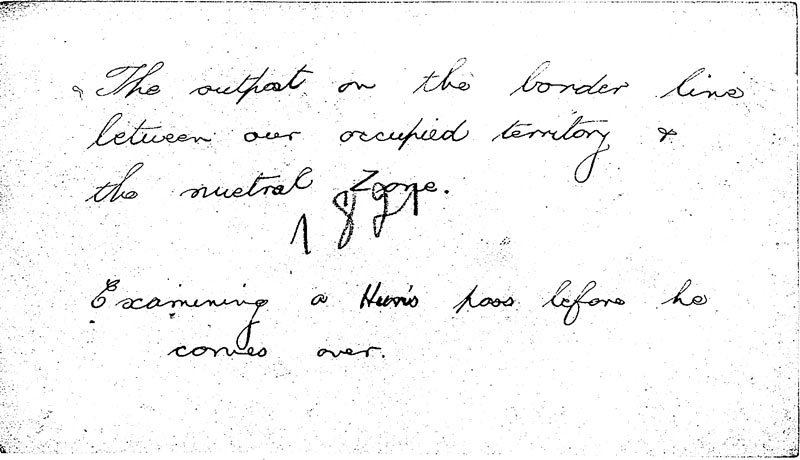 The outpost on the border line
between our occupied territory &
the nuetral Zone.
1891
Examining a Hun's pass before he
comes over.